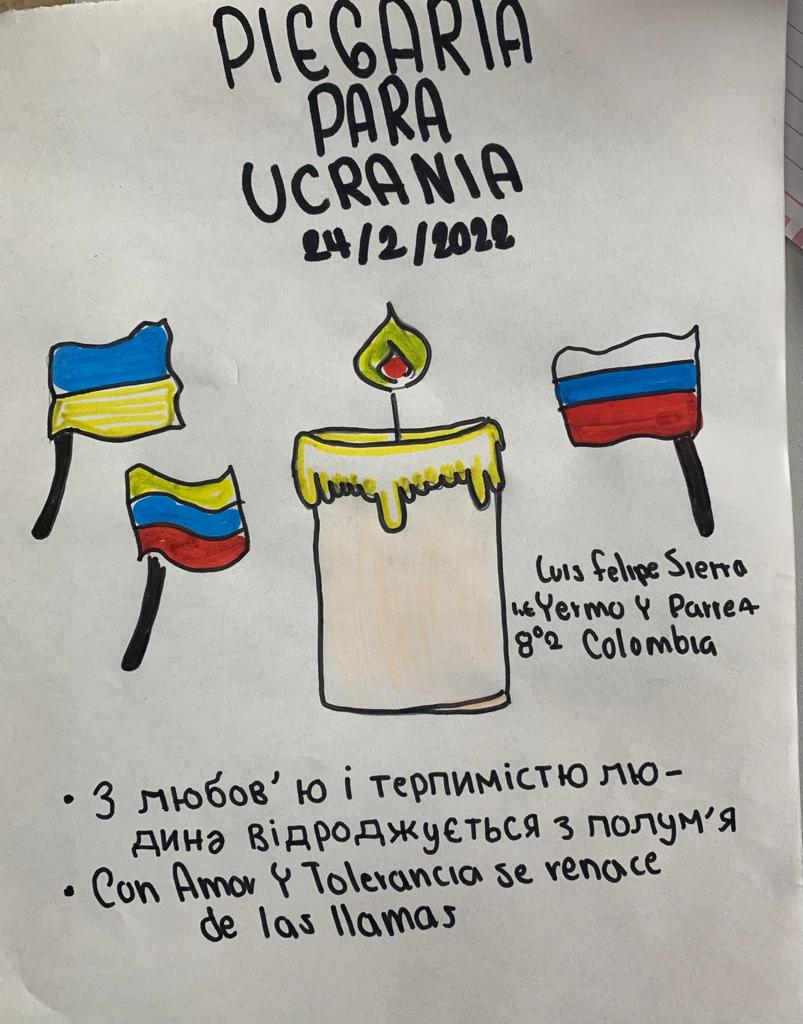 PlEGARIA
PARA
UCRANIA
24/2/2022
Luis Felipe Sierra
I.E Yermo Y Parres
8°2 Colombia
• З любов'ю і терпимістю лю-
дина відроджується з полум'я
• Con Amor Y Tolerancia se renace
de las llamas